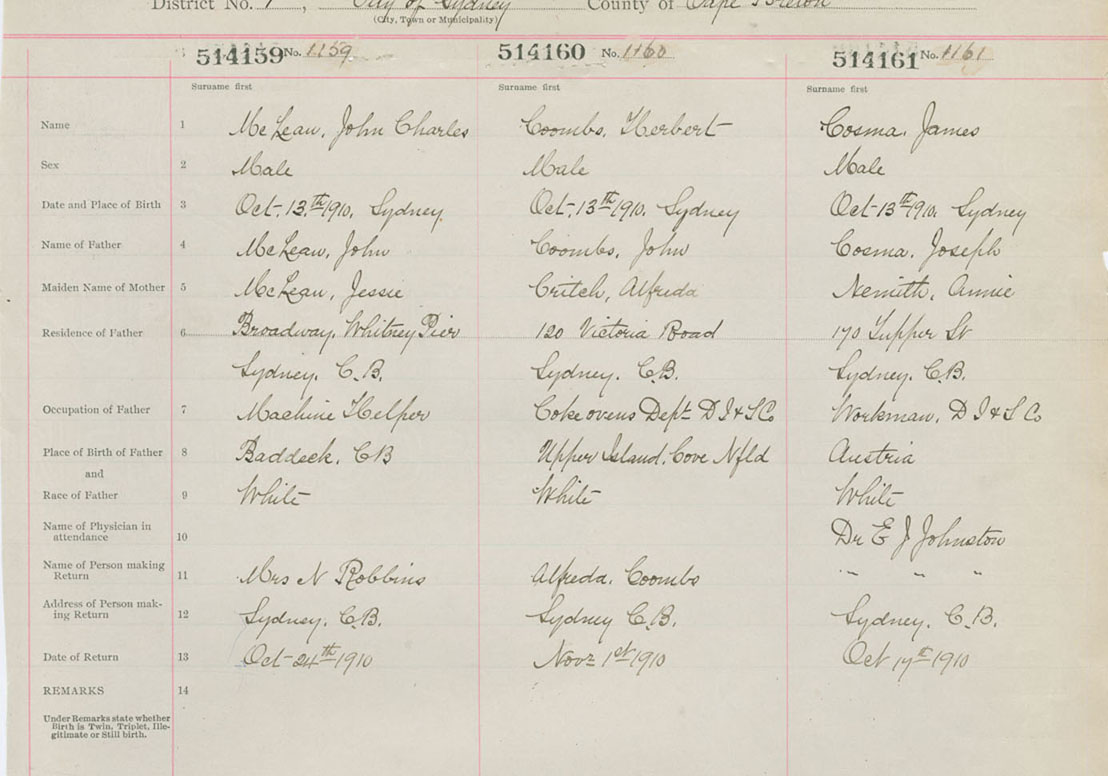 District No. 1, City of Sydney County of Cape Breton
(City, Town or Municipality)
514159 No. 1159 514160 No. 1160 514161 No. 1161
Surname first Surname first Surname first
Name 1 McLean, John Charles Coombs, Herbert Cosma, James
Sex 2 Male Male Male
Date and Place of Birth 3 Oct. 13th 1910. Sydney Oct. 13th 1910. Sydney Oct 13th 1910. Sydney
Name of Father 4 McLean, John Coombs, John Cosma, Joseph
Maiden Name of Mother 5 McLean, Jessie Critch, Alfreda Nemith, Annie
Residence of Father 6 Broadway, Whitney Pier 120 Victoria Road 170 Tupper St
Sydney. C.B. Sydney. C.B. Sydney. C.B.
Occupation of Father 7 Machine Helper Coke ovens Dept. D I & S Co Workman, D I & S Co
Place of Birth of Father 8 Baddeck, CB Upper Island Cove Nfld Austria
and
Race of Father 9 White White White
Name of Physician in
attendance 10 Dr E J Johnston
Name of Person making
Return 11 Mrs N Robbins Alfreda Coombs " " "
Address of Person mak-
ing Return 12 Sydney, C.B. Sydney C.B. Sydney, C.B.
Date of Return 13 Oct 24th 1910 Nov. 1st 1910 Oct 17th 1910
REMARKS 14
Under Remarks state whether
Birth is Twin, Triplet, Ille-
gitimate or Still birth.